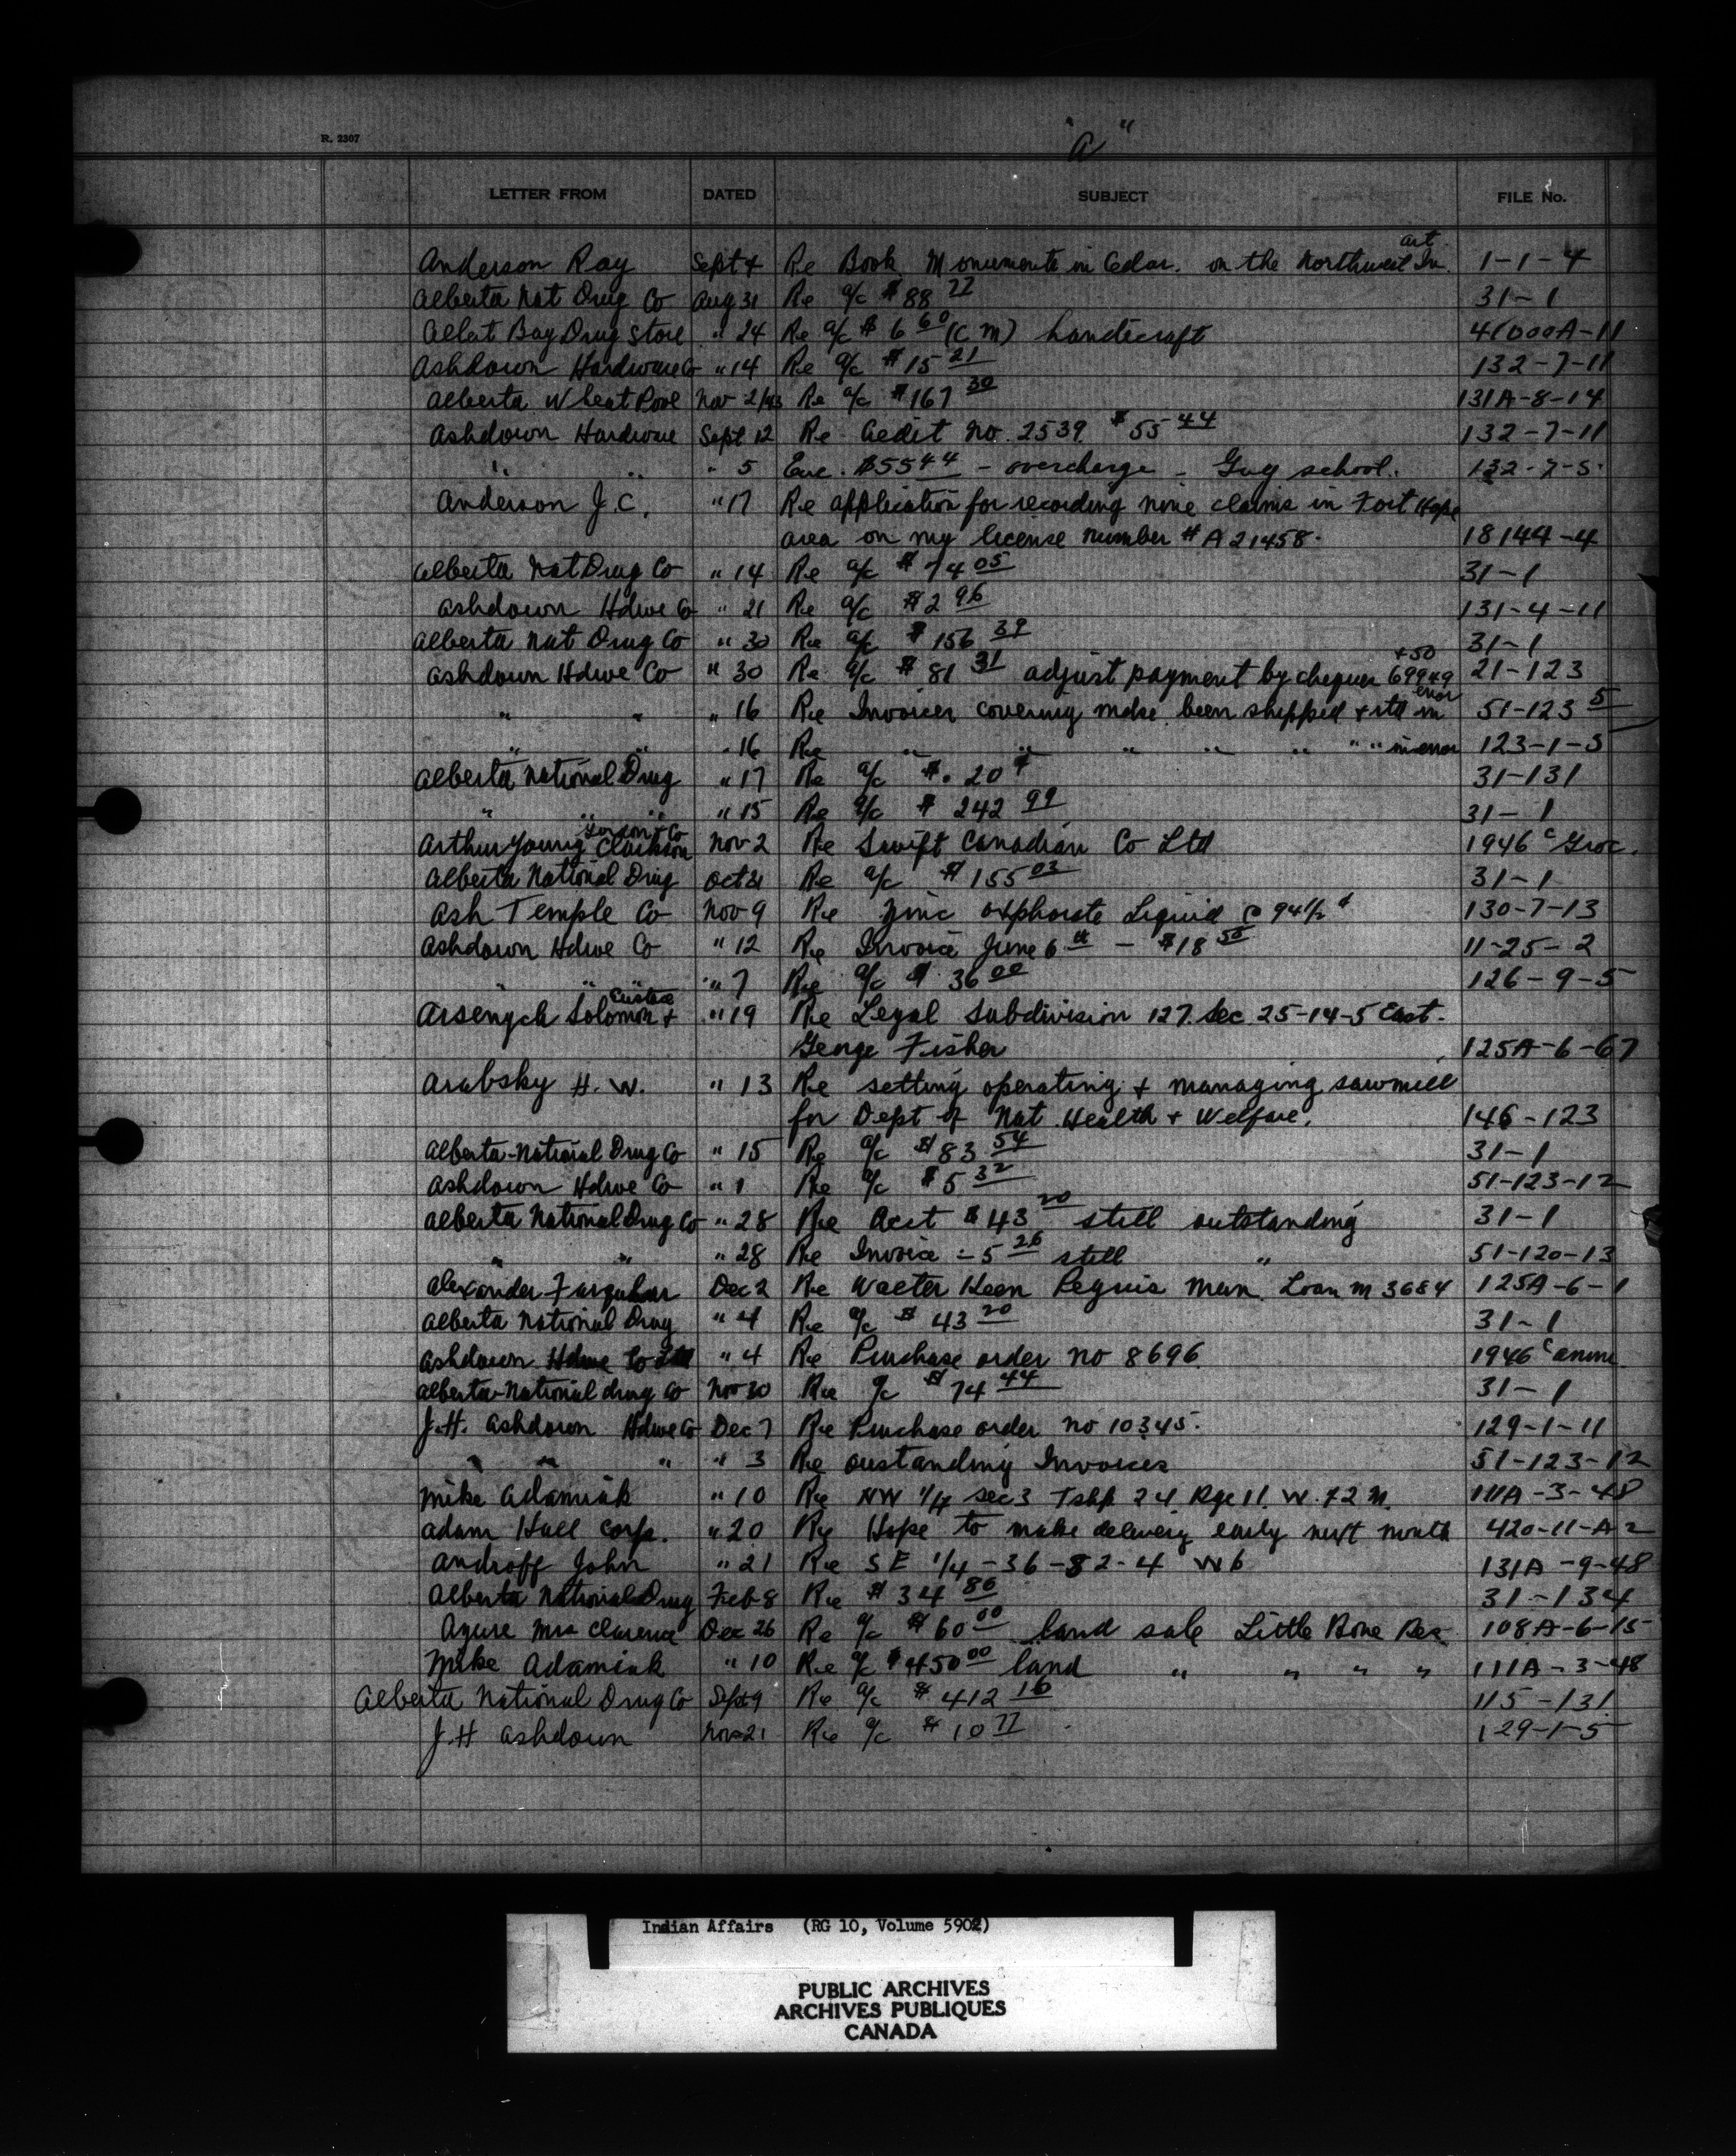 R. 2307
"A"
LETTER FROM DATED SUBJECT FILE No.
Anderson Ray Sept 4 Re Book Monuments in Cedar. on the Northwest art In. 1-1-4
Alberta Nat Drug Co Aug 31 Re a/c $88 77 31-1
Alert Bay Drug Store " 24 Re a/c $6 60 (C M) handicraft 41000A-11
Ashdown Hardware Co " 14 Re a/c $15 21 132-7-11
Alberta Wheat Pool Nov 2/43 Re a/c $167 30 131A-8-14
Ashdown Hardware Sept 12 Re Credit No. 2539 $55 44 132-7-11
" " " 5 Enc. $55 44 - overcharge - Guy school. 132-7-5
Anderson J.C. " 17 Re application for recording nine claims in Fort Hope
area on my license number # A 21458. 18144-4
Alberta Nat Drug Co " 14 Re a/c $74 05 31-1
Ashdown Hdwe Co " 21 Re a/c $2 96 131-4-11
Alberta Nat Drug Co " 30 Re a/c $156 39 31-1
Ashdown Hdwe Co " 30 Re a/c $81 31 adjust payment by cheques 69949 +50 21-123
" " " 16 Re Invoices covering mdse. been shipped + rtd in error 51-123 5
" " " 16 Re " " " " " " " in error 123-1-5
Alberta National Drug " 17 Re a/c $.20¢ 31-131
" " " " 15 Re a/c $242 99 31-1
Arthur Young Clarkson Gordon + Co Nov 2 Re Swift Canadian Co Ltd 1946 c Groc.
Alberta National Drug Oct 21 Re a/c $155 03 31-1
Ash Temple Co Nov 9 Re Zinc Liquid @ 94 1/2 ¢ 130-7-13
Ashdown Hdwe Co " 12 Re Invoice June 6th - $18 50 11-25-2
" " " 7 Re a/c $36 00 126-9-5
Arsenych Solomon + " 19 Re Legal Subdivision 127. Sec. 25-14-5 East.
George Fisher 125A-6-67
Arabsky H. W. " 13 Re setting operating + managing sawmill
for Dept of Nat. Health + Welfare. 146-123
Alberta-National Drug Co " 15 Re a/c $83 54 31-1
Ashdown Hdwe Co " 1 Re a/c $5 32 51-123-12
Alberta National Drug Co " 28 Re Acct $43 20 still outstanding 31-1
" " " 28 Re Invoice - 5 26 still " 51-120-13
Alexander Farquhar Dec 2 Re Walter Keen Peguis Man. Loan M 3684 125A-6-1
Alberta National Drug " 4 Re a/c $43 20 31-1
Ashdown Hdwe Co Ltd " 4 Re Purchase order no 8696 1946 c
Alberta-National drug Co Nov 30 Re a/c $74 44 31-1
J.H. Ashdown Hdwe Co Dec 7 Re Purchase order no 10345. 129-1-11
" " " " 3 Re oustanding Invoices 51-123-12
Mike Adamiak " 10 Re NW 1/4 sec 3 Tshp 24 Rge 11. W. 72 M. 111A-3-48
Adam Hall Corp. " 20 Re Hope to make delivery early next month 420-11-A2
Androff John " 21 Re SE 1/4-36-82-4 W6 131A-9-48
Alberta National Drug Feb 8 Re $34 86 31-134
Azure Mrs Clarence Dec 26 Re a/c $60 00 land sale Little Bone Res 108A-6-15
Mike Adamiak " 10 Re a/c $450 00 land " " " " 111A-3-48
Alberta National Drug Co Sept 9 Re a/c $412 16 115-131
J.H Ashdown Nov 21 Re a/c $10 77 129-1-5
Indian Affairs (RG 10, Volume 5902)
PUBLIC ARCHIVES
ARCHIVES PUBLIQUES
CANADA